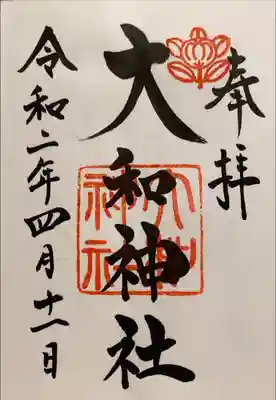 奉拝
大和神社
令和二年四月十一日
大和神社